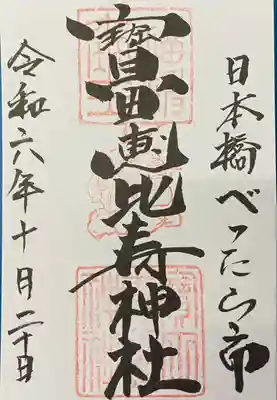 日本橋べったら市
寳田恵比寿神社
令和六年十月二十日